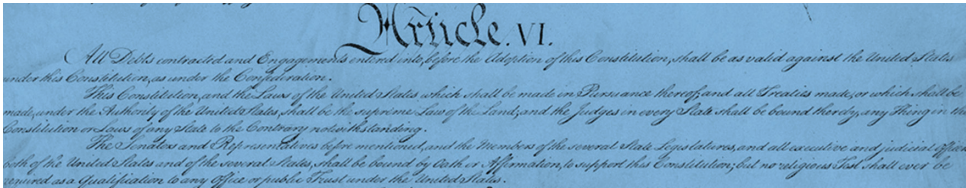 Article. VI.
All Debts contracted and Engagements entered into, before the Adoption of this Constitution, shall be as valid against the United States
under this Constitution, as under the Confederation.
This Constitution, and the Laws of the United States which shall be made in Pursuance thereof; and all Treaties made, or which shall be
made, under the Authority of the United States, shall be the supreme Law of the Land; and the Judges in every State shall be bound thereby, any Thing in the
Constitution or Laws of any State to the Contrary notwithstanding.
The Senators and Representatives before mentioned, and the Members of the several State Legislatures, and all executive and judicial Officers
both of the United States and of the several States, shall be bound by Oath or Affirmation, to support this Constitution; but no religious Test shall ever be
required as a Qualification to any Office or public Trust under the United States.